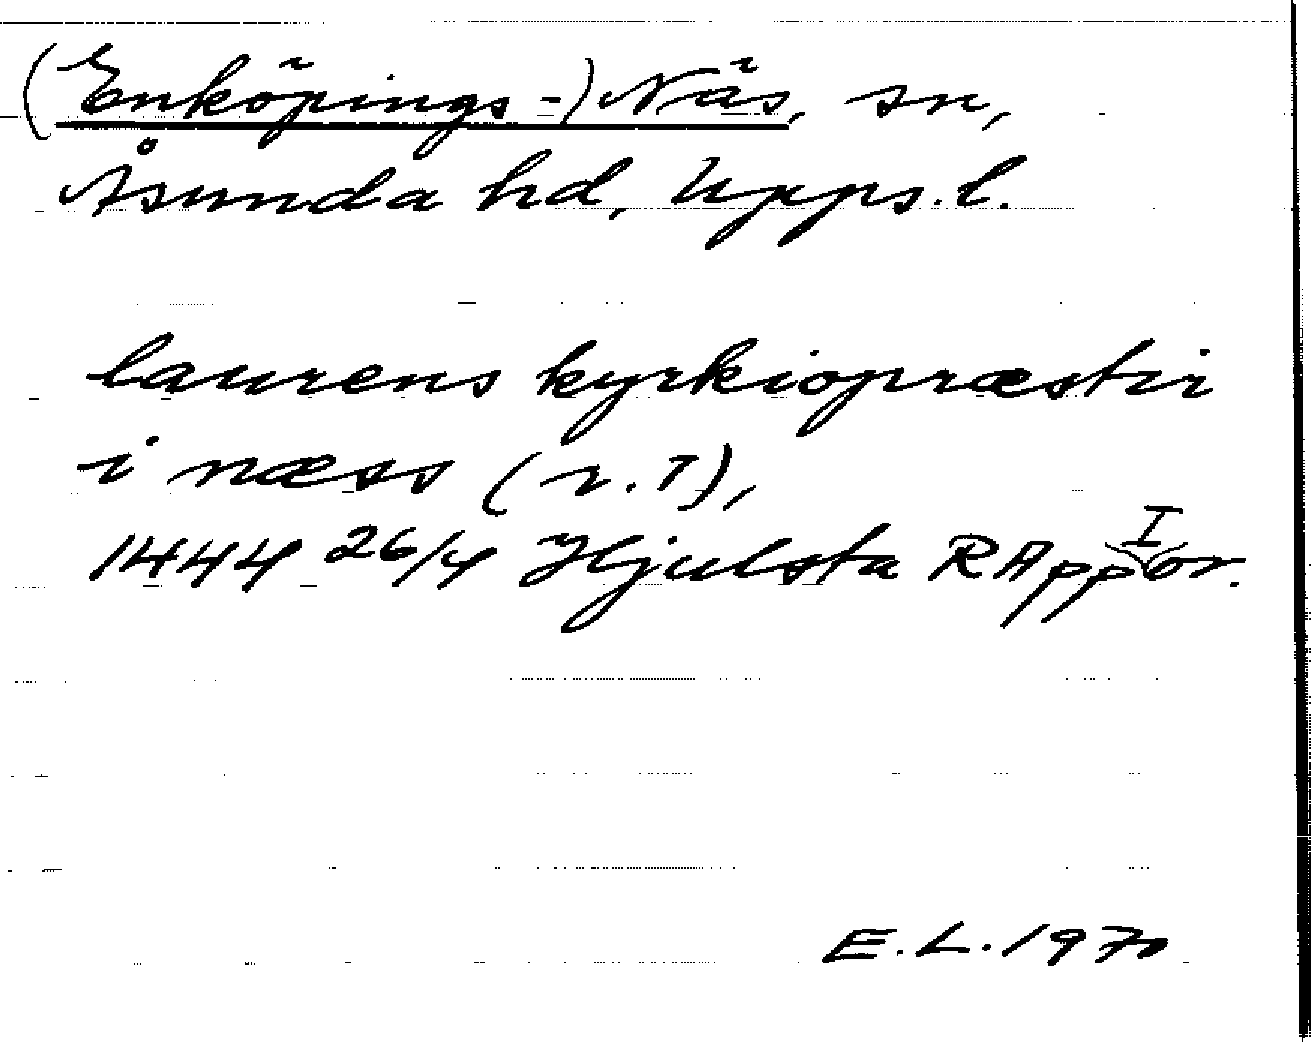 (Enköpings-) Näs, sn,
Åsunda hd, Upps.l.
laurens kyrkiopræstir
i næss (r. 7),
1444 26/4 Hjulsta RApp I or.
E.L. 1970